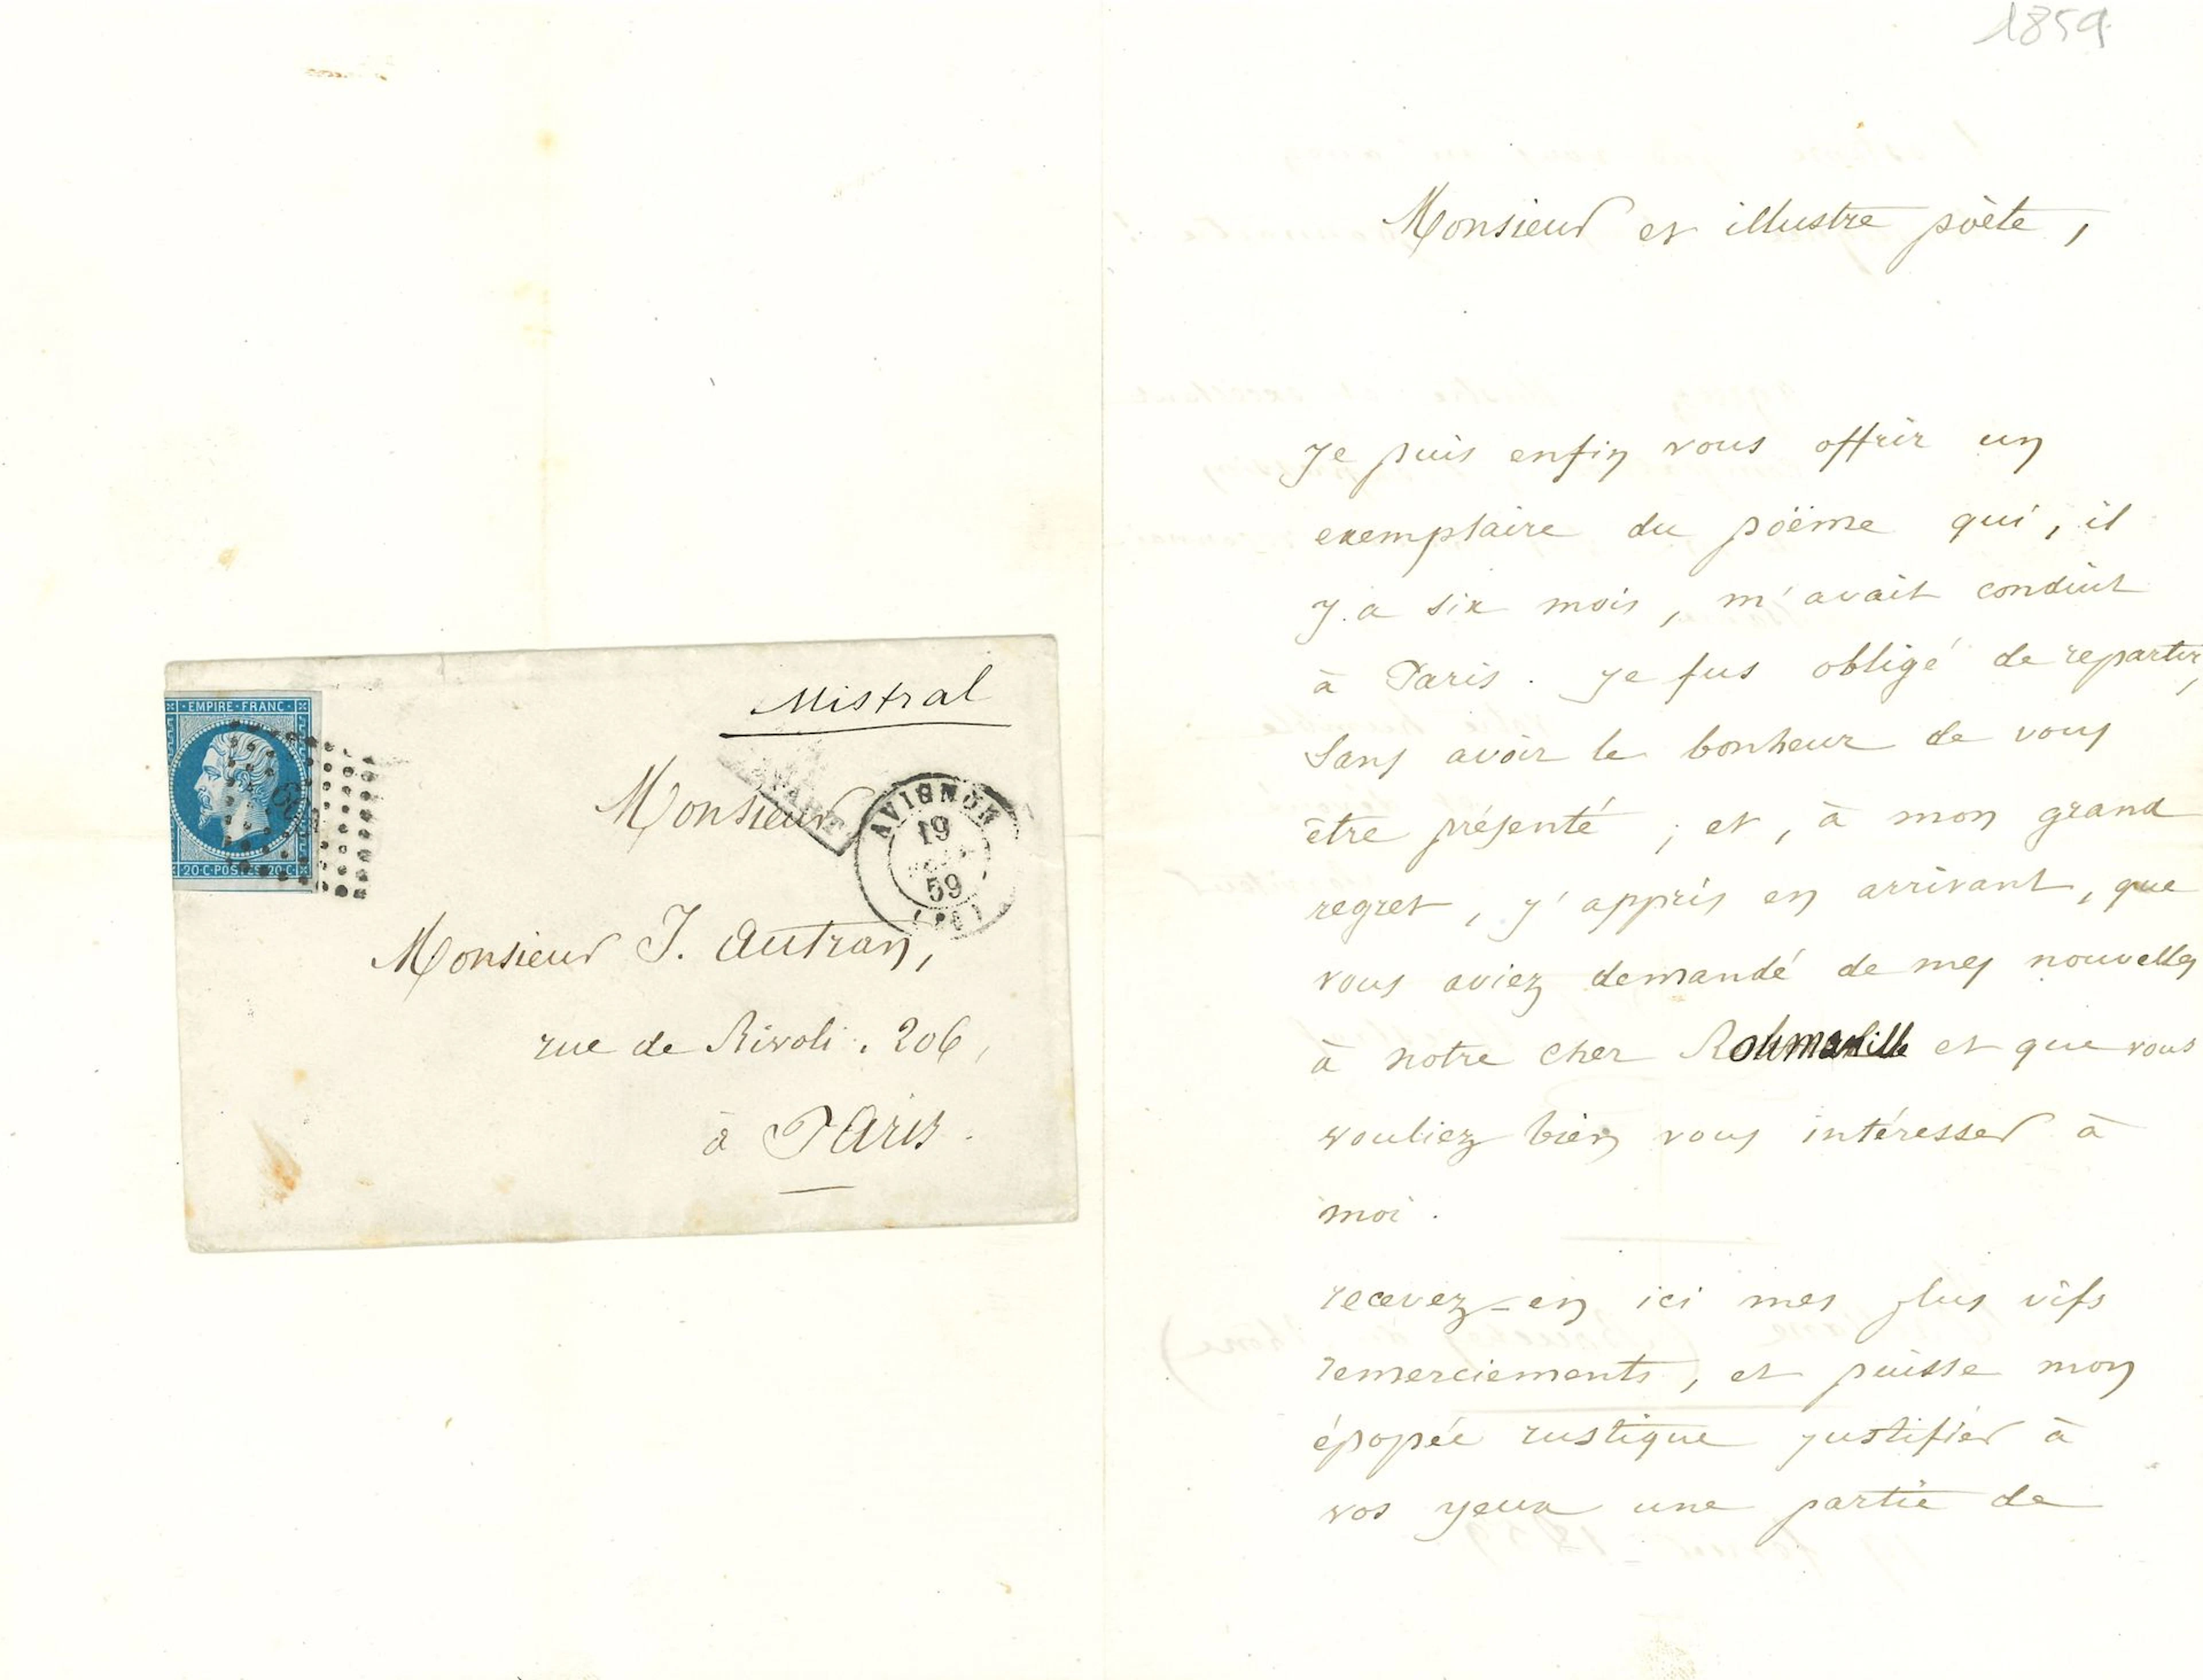 1859
Monsieur et illustre pöète,
Je puis enfin vous offrir un
exemplaire du pöëme qui, il
y a six mois, m'avait conduit
à Paris. Je fus obligé de repartir,
sans avoir le bonheur de vous
être présenté ; et, à mon grand
regret, j'appris en arrivant, que
vous aviez demandé de mes nouvelles
à notre cher Roumanille et que vous
vouliez bien vous intéresser à
moi.
recevez-en ici mes plus vifs
remerciements, et puisse mon
épopée rustique justifier à
vos yeux une partie de
Mistral
EMPIRE·FRANC·
20·C·POSTES·20·C·
AVIGNON
19
59
Monsieur
Monsieur J. Autran,
rue de Rivoli. 206,
à Paris.